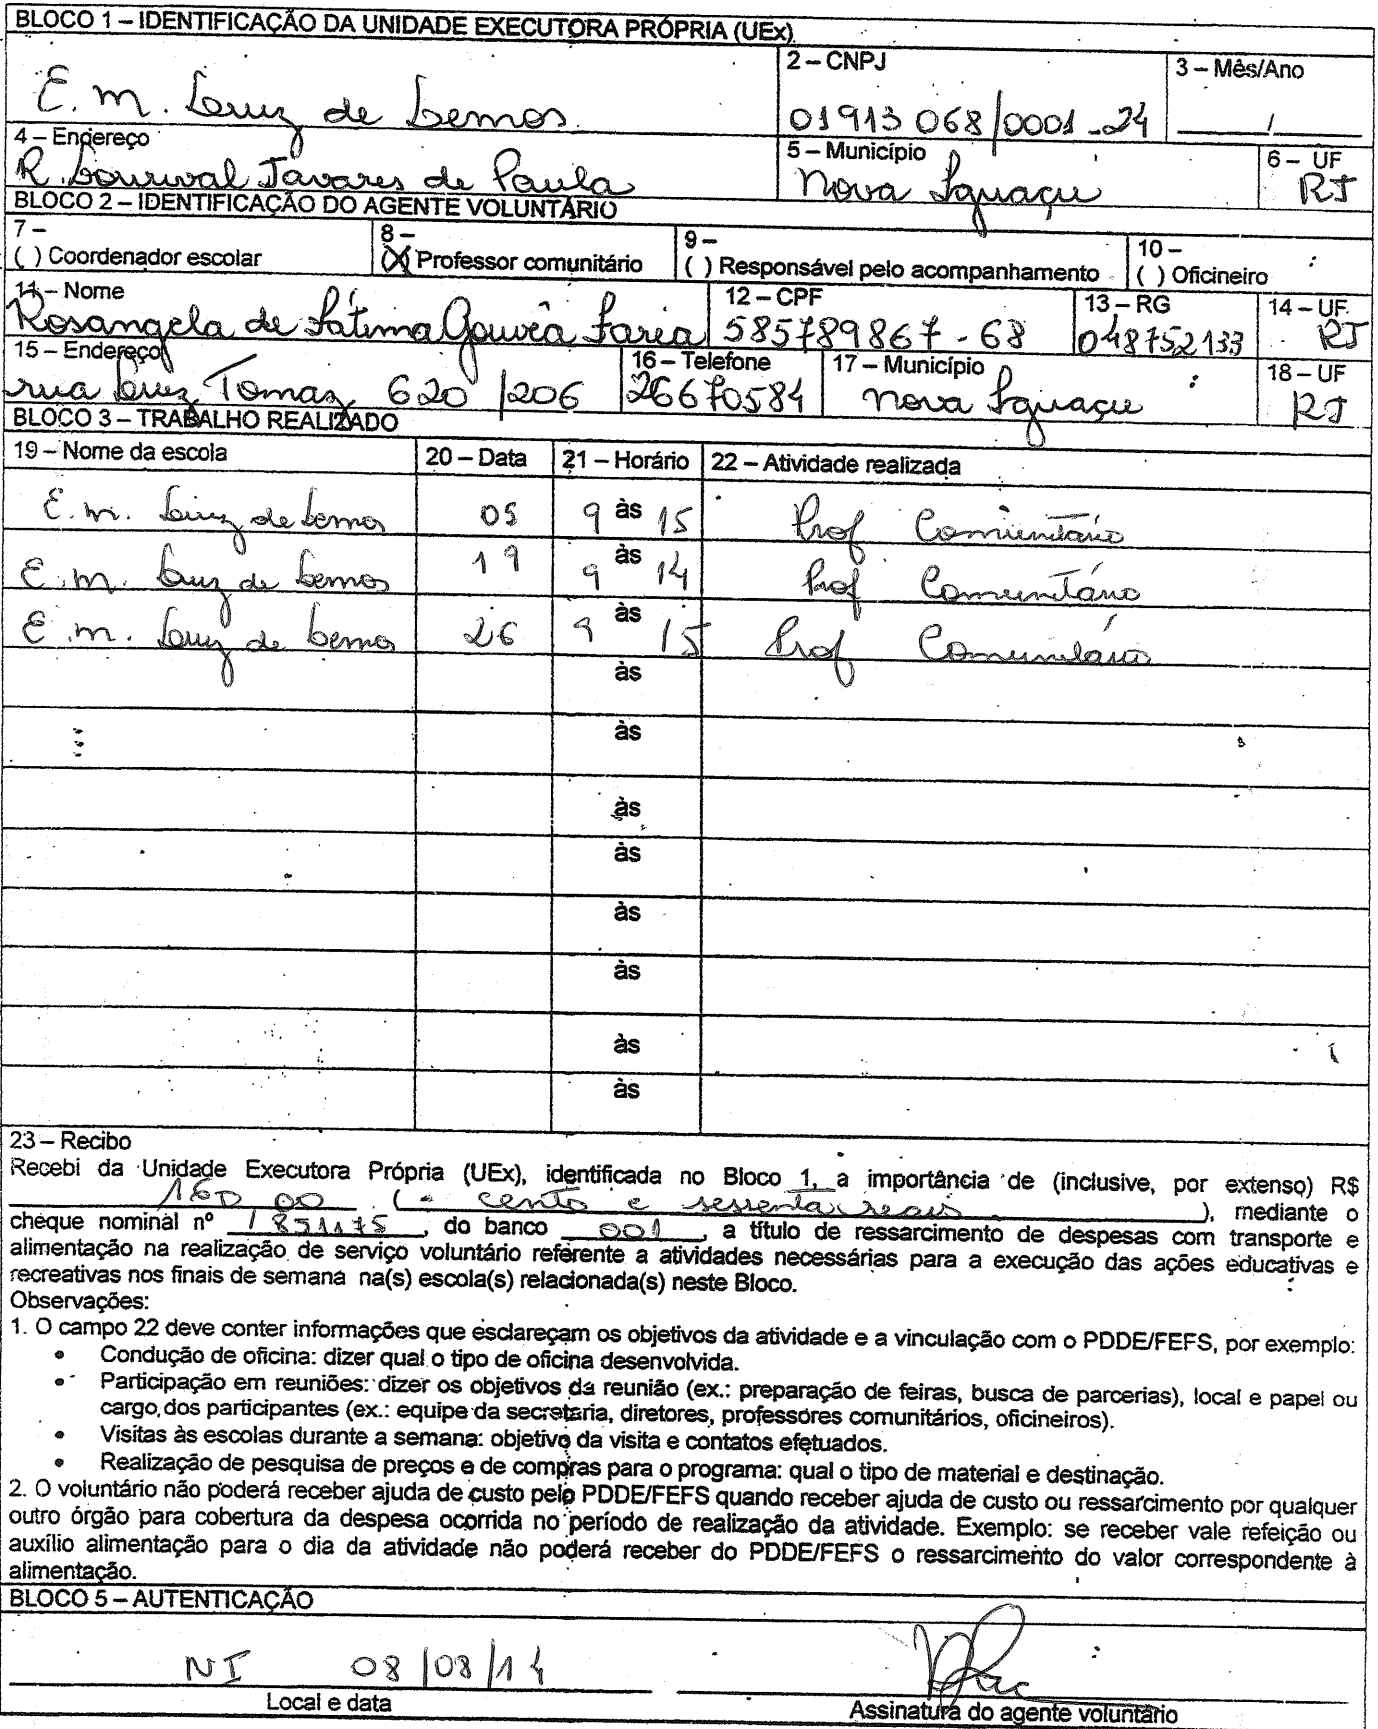 BLOCO 1 – IDENTIFICAÇÃO DA UNIDADE EXECUTORA PRÓPRIA (UEx)
2 – CNPJ
3 – Mês/Ano
E. M. Luiz de Lemos
01913 068/0001-24
/
4 – Endereço
5 – Município
6 – UF
R. Lourival Tavares de Paula
Nova Iguaçu
RJ
BLOCO 2 – IDENTIFICAÇÃO DO AGENTE VOLUNTÁRIO
7 –
8 –
9 –
10 –
( ) Coordenador escolar
(X) Professor comunitário
( ) Responsável pelo acompanhamento
( ) Oficineiro
11 – Nome
12 – CPF
13 – RG
14 – UF
Rosangela de Fátima Gouvêa Faria
585789867-68
048752133
RJ
15 – Endereço
16 – Telefone
17 – Município
18 – UF
rua Luiz Tomaz 620 /206
26670584
Nova Iguaçu
RJ
BLOCO 3 – TRABALHO REALIZADO
19 – Nome da escola
20 – Data
21 – Horário
22 – Atividade realizada
E. M. Luiz de Lemos 05 9 às 15 Prof Comunitário
E. M. Luiz de Lemos 19 9 às 14 Prof Comunitário
E. M. Luiz de Lemos 26 9 às 15 Prof Comunitário
às
às
às
às
às
às
às
às
23 – Recibo
Recebi da Unidade Executora Própria (UEx), identificada no Bloco 1, a importância de (inclusive, por extenso) R$
160 00 (- cento e sessenta reais ), mediante o
cheque nominal nº 851175, do banco 001, a título de ressarcimento de despesas com transporte e
alimentação na realização de serviço voluntário referente a atividades necessárias para a execução das ações educativas e
recreativas nos finais de semana na(s) escola(s) relacionada(s) neste Bloco.
Observações:
1. O campo 22 deve conter informações que esclareçam os objetivos da atividade e a vinculação com o PDDE/FEFS, por exemplo:
• Condução de oficina: dizer qual o tipo de oficina desenvolvida.
• Participação em reuniões: dizer os objetivos da reunião (ex.: preparação de feiras, busca de parcerias), local e papel ou
cargo dos participantes (ex.: equipe da secretaria, diretores, professores comunitários, oficineiros).
• Visitas às escolas durante a semana: objetivo da visita e contatos efetuados.
• Realização de pesquisa de preços e de compras para o programa: qual o tipo de material e destinação.
2. O voluntário não poderá receber ajuda de custo pelo PDDE/FEFS quando receber ajuda de custo ou ressarcimento por qualquer
outro órgão para cobertura da despesa ocorrida no período de realização da atividade. Exemplo: se receber vale refeição ou
auxílio alimentação para o dia da atividade não poderá receber do PDDE/FEFS o ressarcimento do valor correspondente à
alimentação.
BLOCO 5 – AUTENTICAÇÃO
NI 08/08/14
Local e data
Assinatura do agente voluntário